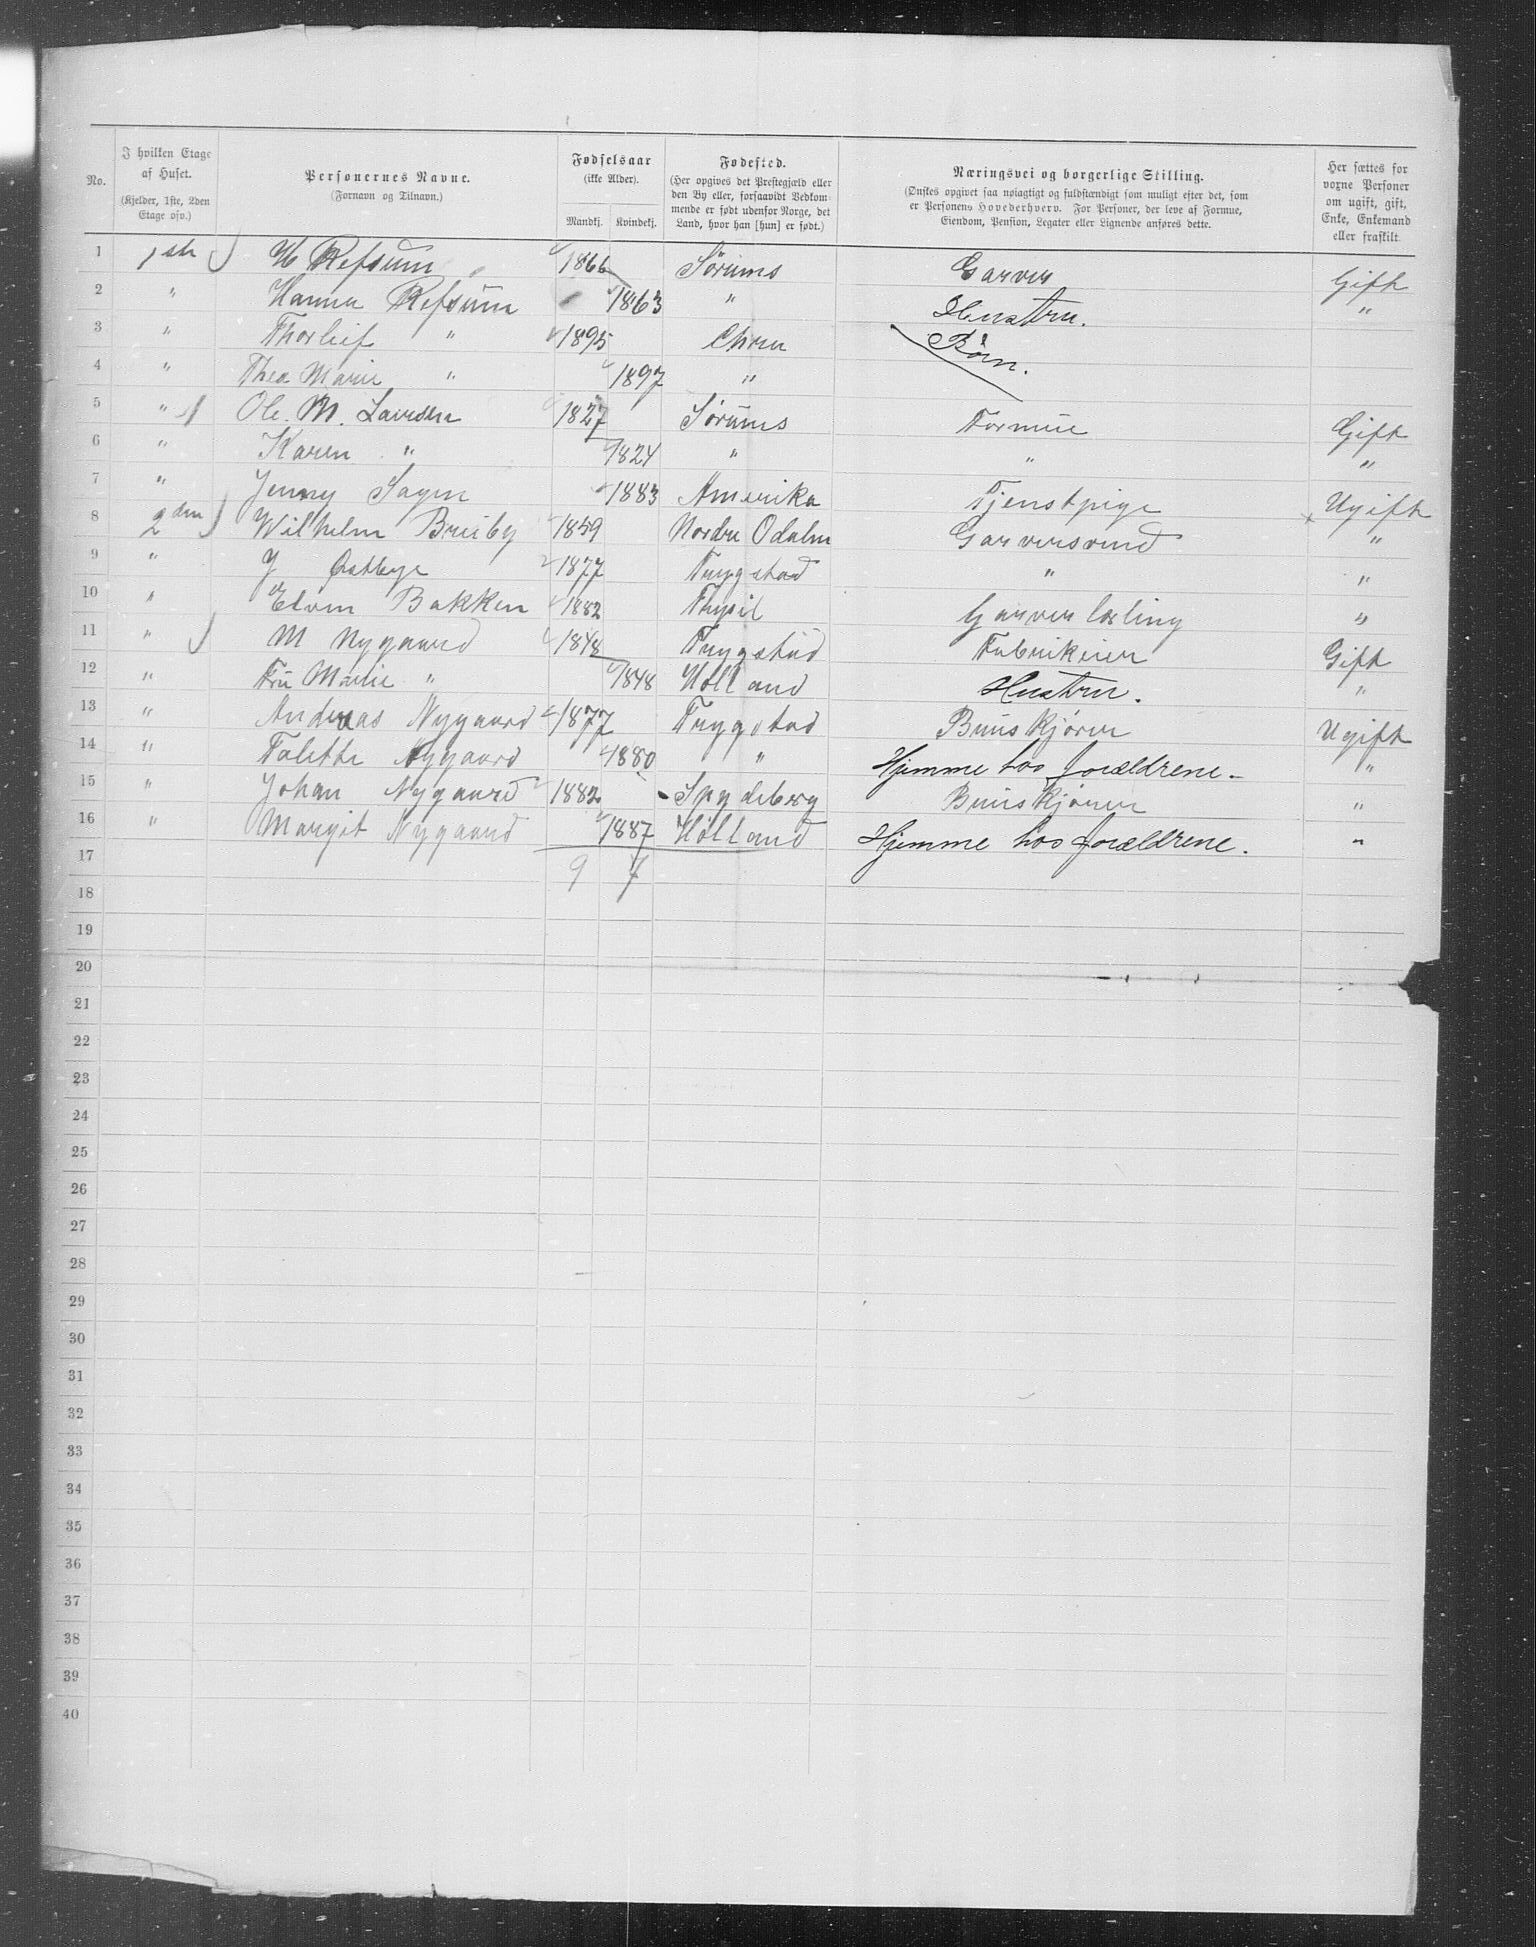 No.
I hvilken Etage af Huset.
(Kjelder, 1ste, 2den Etage osv.)
Personernes Navne.
(Fornavn og Tilnavn.)
Fødselsaar
(ikke Alder).
Mandkj. Kvindekj.
Fødested.
(Her opgives det Prestegjæld eller
den By eller, forsaavidt Vedkom-
mende er født udenfor Norge, det
Land, hvor han [hun] er født.)
Næringsvei og borgerlige Stilling.
(Ønskes opgivet saa nøiagtigt og fuldstændigt som muligt efter det, som
er Personens Hovederhverv. For Personer, der leve af Formue,
Eiendom, Pension, Legater eller Lignende anføres dette.
Her sættes for
voxne Personer
om ugift, gift,
Enke, Enkemand
eller fraskilt.
1 1ste H Refsum 1866 Sørums Garver Gift
2 " Hanna Refsum 1863 " Hustru. "
3 " Thorleif " 1895 Chrn Børn.
4 " Thea Marie " 1897 "
5 " Ole. M. Laursen 1827 Sørums Formue Gift
6 " Karen " 1824 " " "
7 " Jenny Sagen 1883 Amerika Tjenstpige Ugift
8 2den Wilhelm Breiby 1859 Nordre Odalen Garversvend "
9 " J Østbye 1877 Trygstad " "
10 " Elven Bakken 1882 Thrysil Garver lærling "
11 " M Nygaard 1848 Trygstad Fabrikeier Gift
12 " Fru Marie " 1848 Høland Hustru. "
13 " Andreas Nygaard 1877 Trygstad Buiskjører Ugift
14 " Talette Nygaard 1880 " Hjemme hos forældrene. "
15 " Johan Nygaard 1882 Spydeberg Buiskjører "
16 " Margit Nygaard 1887 Høland Hjemme hos forældrene. "
17 9 7
18
19
20
21
22
23
24
25
26
27
28
29
30
31
32
33
34
35
36
37
38
39
40